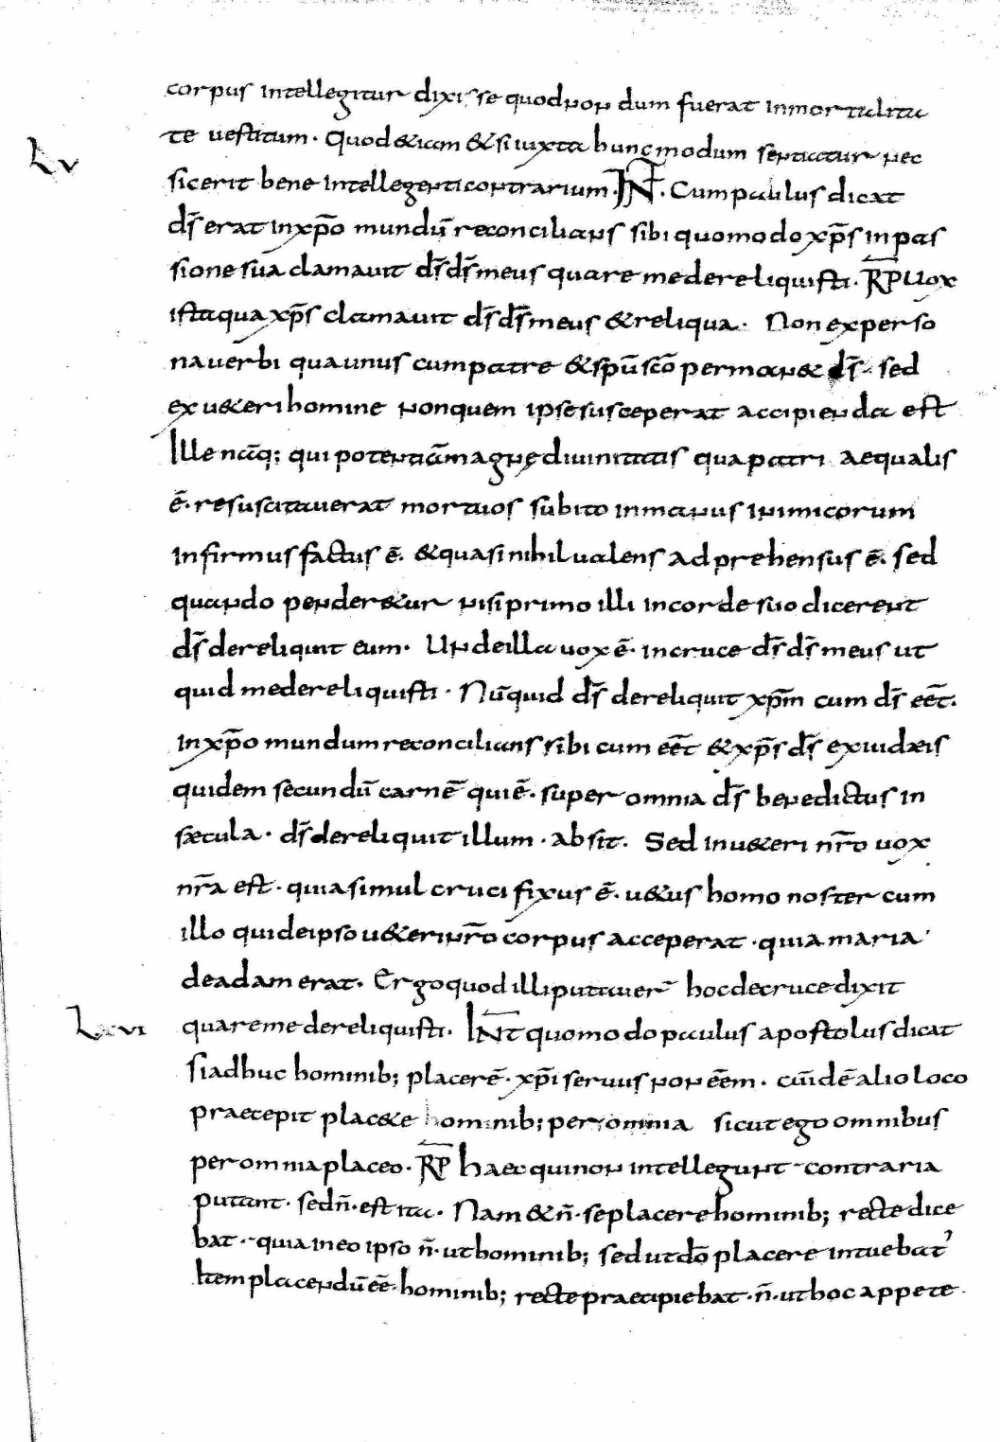 corpus intellegitur dixisse quod non dum fuerat inmortalita
te uestitum. Quod &iam &si iuxta hunc modum sentiatur nec
LV
sic erit bene intellegenti contrarium. INT. Cum paulus dicat
d̄s erat in xp̄o mundū reconcilians sibi quomodo xp̄s in pas
sione sua clamauit d̄s d̄s meus quare me dereliquisti. R̄P Uox
ista qua xp̄s clamauit d̄s d̄s meus & reliqua. Non ex perso
na uerbi qua unus cum patre & sp̄u sc̄o perman& d̄s. sed
ex u&eri homine nonquem ipse susceperat accipienda est
Ille nāq; qui potentiā magnę diuinitatis qua patri aequalis
ē. resuscitauerat mortuos subito in manus inimicorum
infirmus factus ē. & quasi nihil ualens adprehensus ē. sed
quando pender&ur nisi primo illi in corde suo dicerent
d̄s dereliquit eum. Unde illa uox ē. in cruce d̄s d̄s meus ut
quid me dereliquisti. Nūquid d̄s dereliquit xp̄m cum d̄s eēt.
in xp̄o mundum reconcilians sibi cum eēt & xp̄s d̄s ex iudæis
quidem secundū carnē qui ē. super omnia d̄s benedictus in
sæcula. d̄s dereliquit illum. absit. Sed in u&eri nr̄o uox
nr̄a est. quia simul crucifixus ē. u&us homo noster cum
illo qui de ipso u&eri nr̄o corpus acceperat. quia maria
de adam erat. Ergo quod illi putauer̄ hoc de cruce dixit
LXVI
quare me dereliquisti. INT quomodo paulus apostolus dicat
si adhuc hominib; placerē. xp̄i seruus non eēm. cū idē alio loco
praecepit plac&e hominib; per omnia sicut ego omnibus
per omnia placeo. R̄P Haec qui non intellegunt contraria
putant. sed n̄. est ita. Nam & n̄. se placere hominib; recte dice
bat. quia in eo ipso n̄. ut hominib; sed ut d̄o placere intuebat'
Item placendū eē. hominib; recte praecipiebat. n̄. ut hoc appete